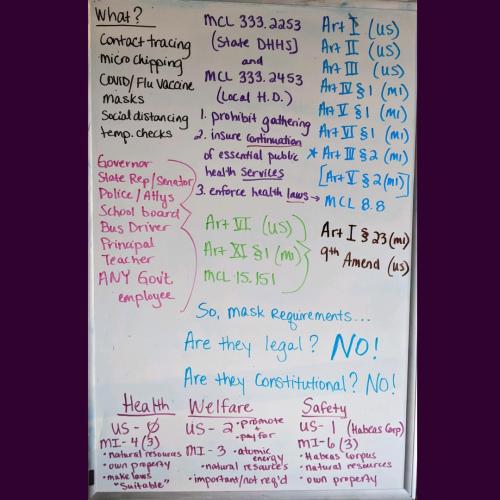 What?
contact tracing
microchipping
COVID/Flu vaccine
masks
Social distancing
temp. checks
MCL 333.2253
(State DHHS)
and
MCL 333.2453
(Local H.D.)
1. prohibit gathering
2. insure continuation
of essential public
health services
3. enforce health laws →
Art I (US)
Art II (US)
Art III (US)
Art IV § 1 (mi)
Art V § 1 (mi)
Art VI § 1 (mi)
* Art III § 2 (mi)
[Art V § 2 (mi)]
MCL 8.8
Art I § 23 (mi)
9th Amend (US)
Governor
State Rep/Senator
Police / Attys
School board
Bus Driver
Principal
Teacher
ANY Gov't
employee
Art VI (US)
Art XI § 1 (mi)
MCL 15.151
So, mask requirements...
Are they legal? NO!
Are they Constitutional? NO!
Health
US - 0
MI - 4 (3)
• natural resources
• own property
• make laws
"suitable"
Welfare
US - 2 • promote
+
pay for
MI - 3 • atomic
energy
• natural resources
• important/not req'd
Safety
US - 1 (Habeas Corp)
MI - 6 (3)
• Habeas Corpus
• natural resources
• own property